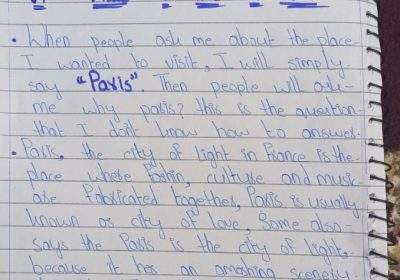 • When people ask me about the place
I wanted to visit, I will simply
say "Paris". Then people will ask
me why paris? this is the question
that I don't know how to answer.
• Paris, the city of light in France is the
place where culture and music
are fabricated together, Paris is usually
known as city of love, Some also
says the Paris is the city of light,
because it has an amazhing scenery